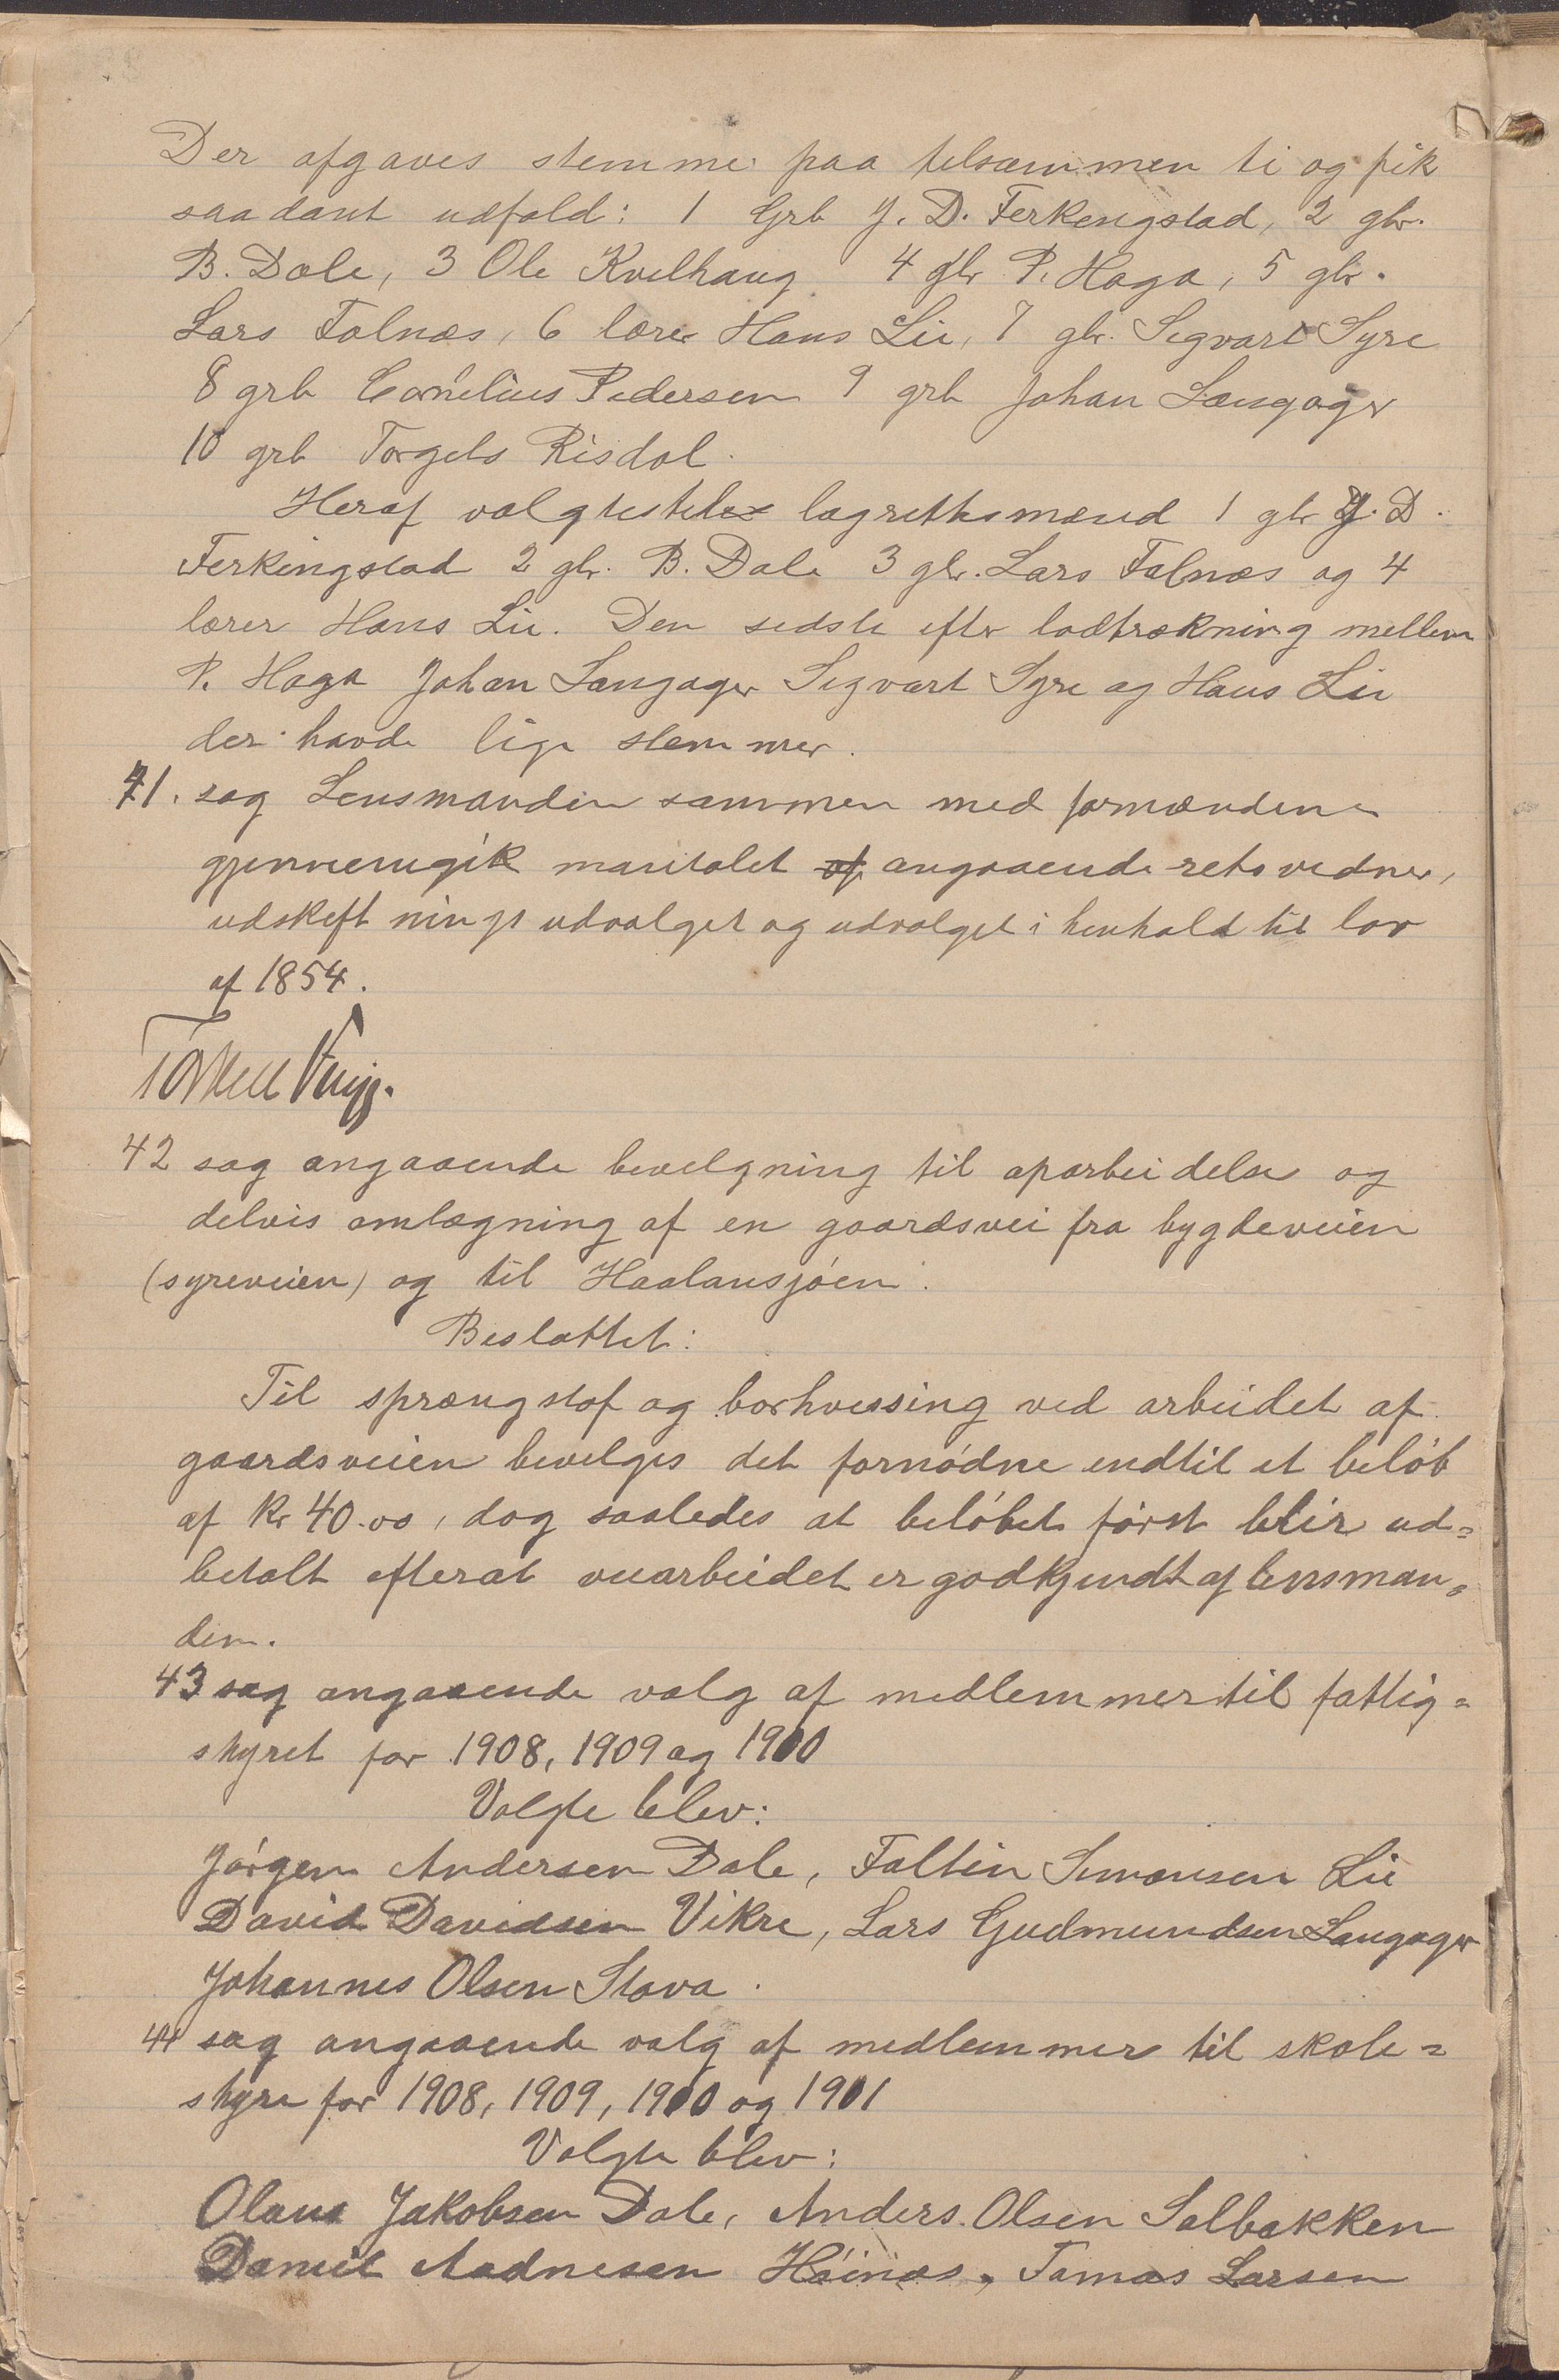 Der afgaves stemme paa tilsammen ti og fik
saadant udfald: 1 Grb J. D. Ferkengstad, 2 gbr.
B. Dale, 3 Ole Kvelhaug 4 gbr P. Haga, 5 gbr.
Lars Falnæs, 6 lærer Hans Lie, 7 gbr. Segvart Syre
8 grb Cornelius Pedersen 9 grb Johan Langager
10 grb Torgels Risdal.
Heraf valgtes til lagrettesmænd 1 gbr J. D.
Ferkingstad 2 gbr. B. Dale 3 gbr. Lars Falnæs og 4
lærer Hans Lie. Den sidste efter lodtrækning mellem
P. Haga Johan Langager Sigvart Syre og Hans Lie
der havde lige stemmer.
41. sag Lensmanden sammen med formændene
gjennemgik mantalet angaaende retsvidner,
udskiftningsudvalget og udvalget i henhold til lov
af 1854.
42 sag angaaende bevelgning til oparbeidelse og
delvis omlægning af en gaardsvei fra bygdeveien
(syreveien) og til Haalansjøen.
Beslattet:
Til sprængstof og borhvessing ved arbeidet af
gaardsveien bevelges det fornødne indtil et beløb
af kr 40.00, dog saaledes at beløbet først blir ud=
betalt efterat veiarbeidet er godkjendt af lensman=
den.
43 sag angaaende valg af medlemmer til fattig=
styret for 1908, 1909 og 1910
Valgte blev:
Jørgen Andersen Dale, Faltin Simonsen Lie
David Davidsen Vikre, Lars Gudmundsen Langager
Johannes Olsen Stava.
44 sag angaaende valg af medlemmer til skole=
styre for 1908, 1909, 1910 og 1911
Valgte blev:
Olaus Jakobsen Dale, Anders Olsen Solbakken
Daniel Aadnesen Høinæs, Tomas Larsen